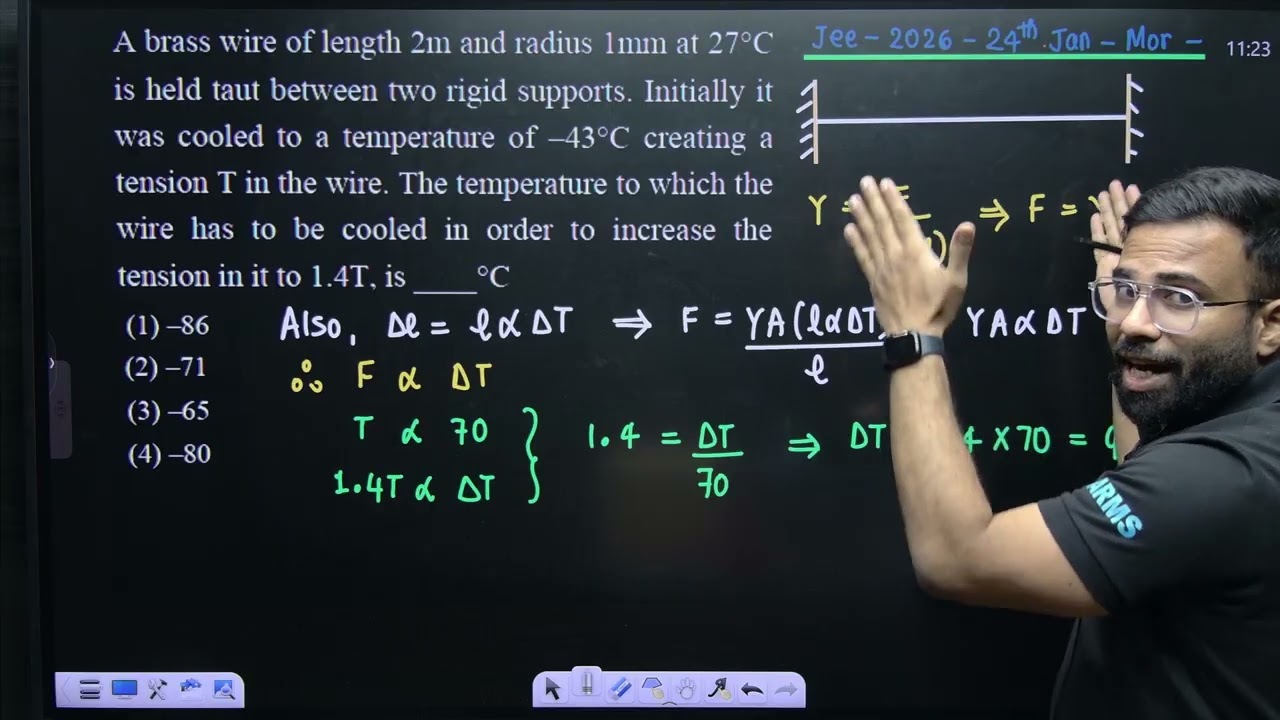 A brass wire of length 2m and radius 1mm at 27°C
is held taut between two rigid supports. Initially it
was cooled to a temperature of –43°C creating a
tension T in the wire. The temperature to which the
wire has to be cooled in order to increase the
tension in it to 1.4T, is ____°C
(1) –86
(2) –71
(3) –65
(4) –80
Jee - 2026 - 24th Jan - Mor -
11:23
Y =
⇒ F =
Also, Δℓ = ℓ α ΔT ⇒ F = YA(ℓαΔT) / ℓ YAαΔT
∴ F ∝ ΔT
T ∝ 70
1.4T ∝ ΔT
1.4 = ΔT / 70 ⇒ ΔT 4 × 70 =
ARMS